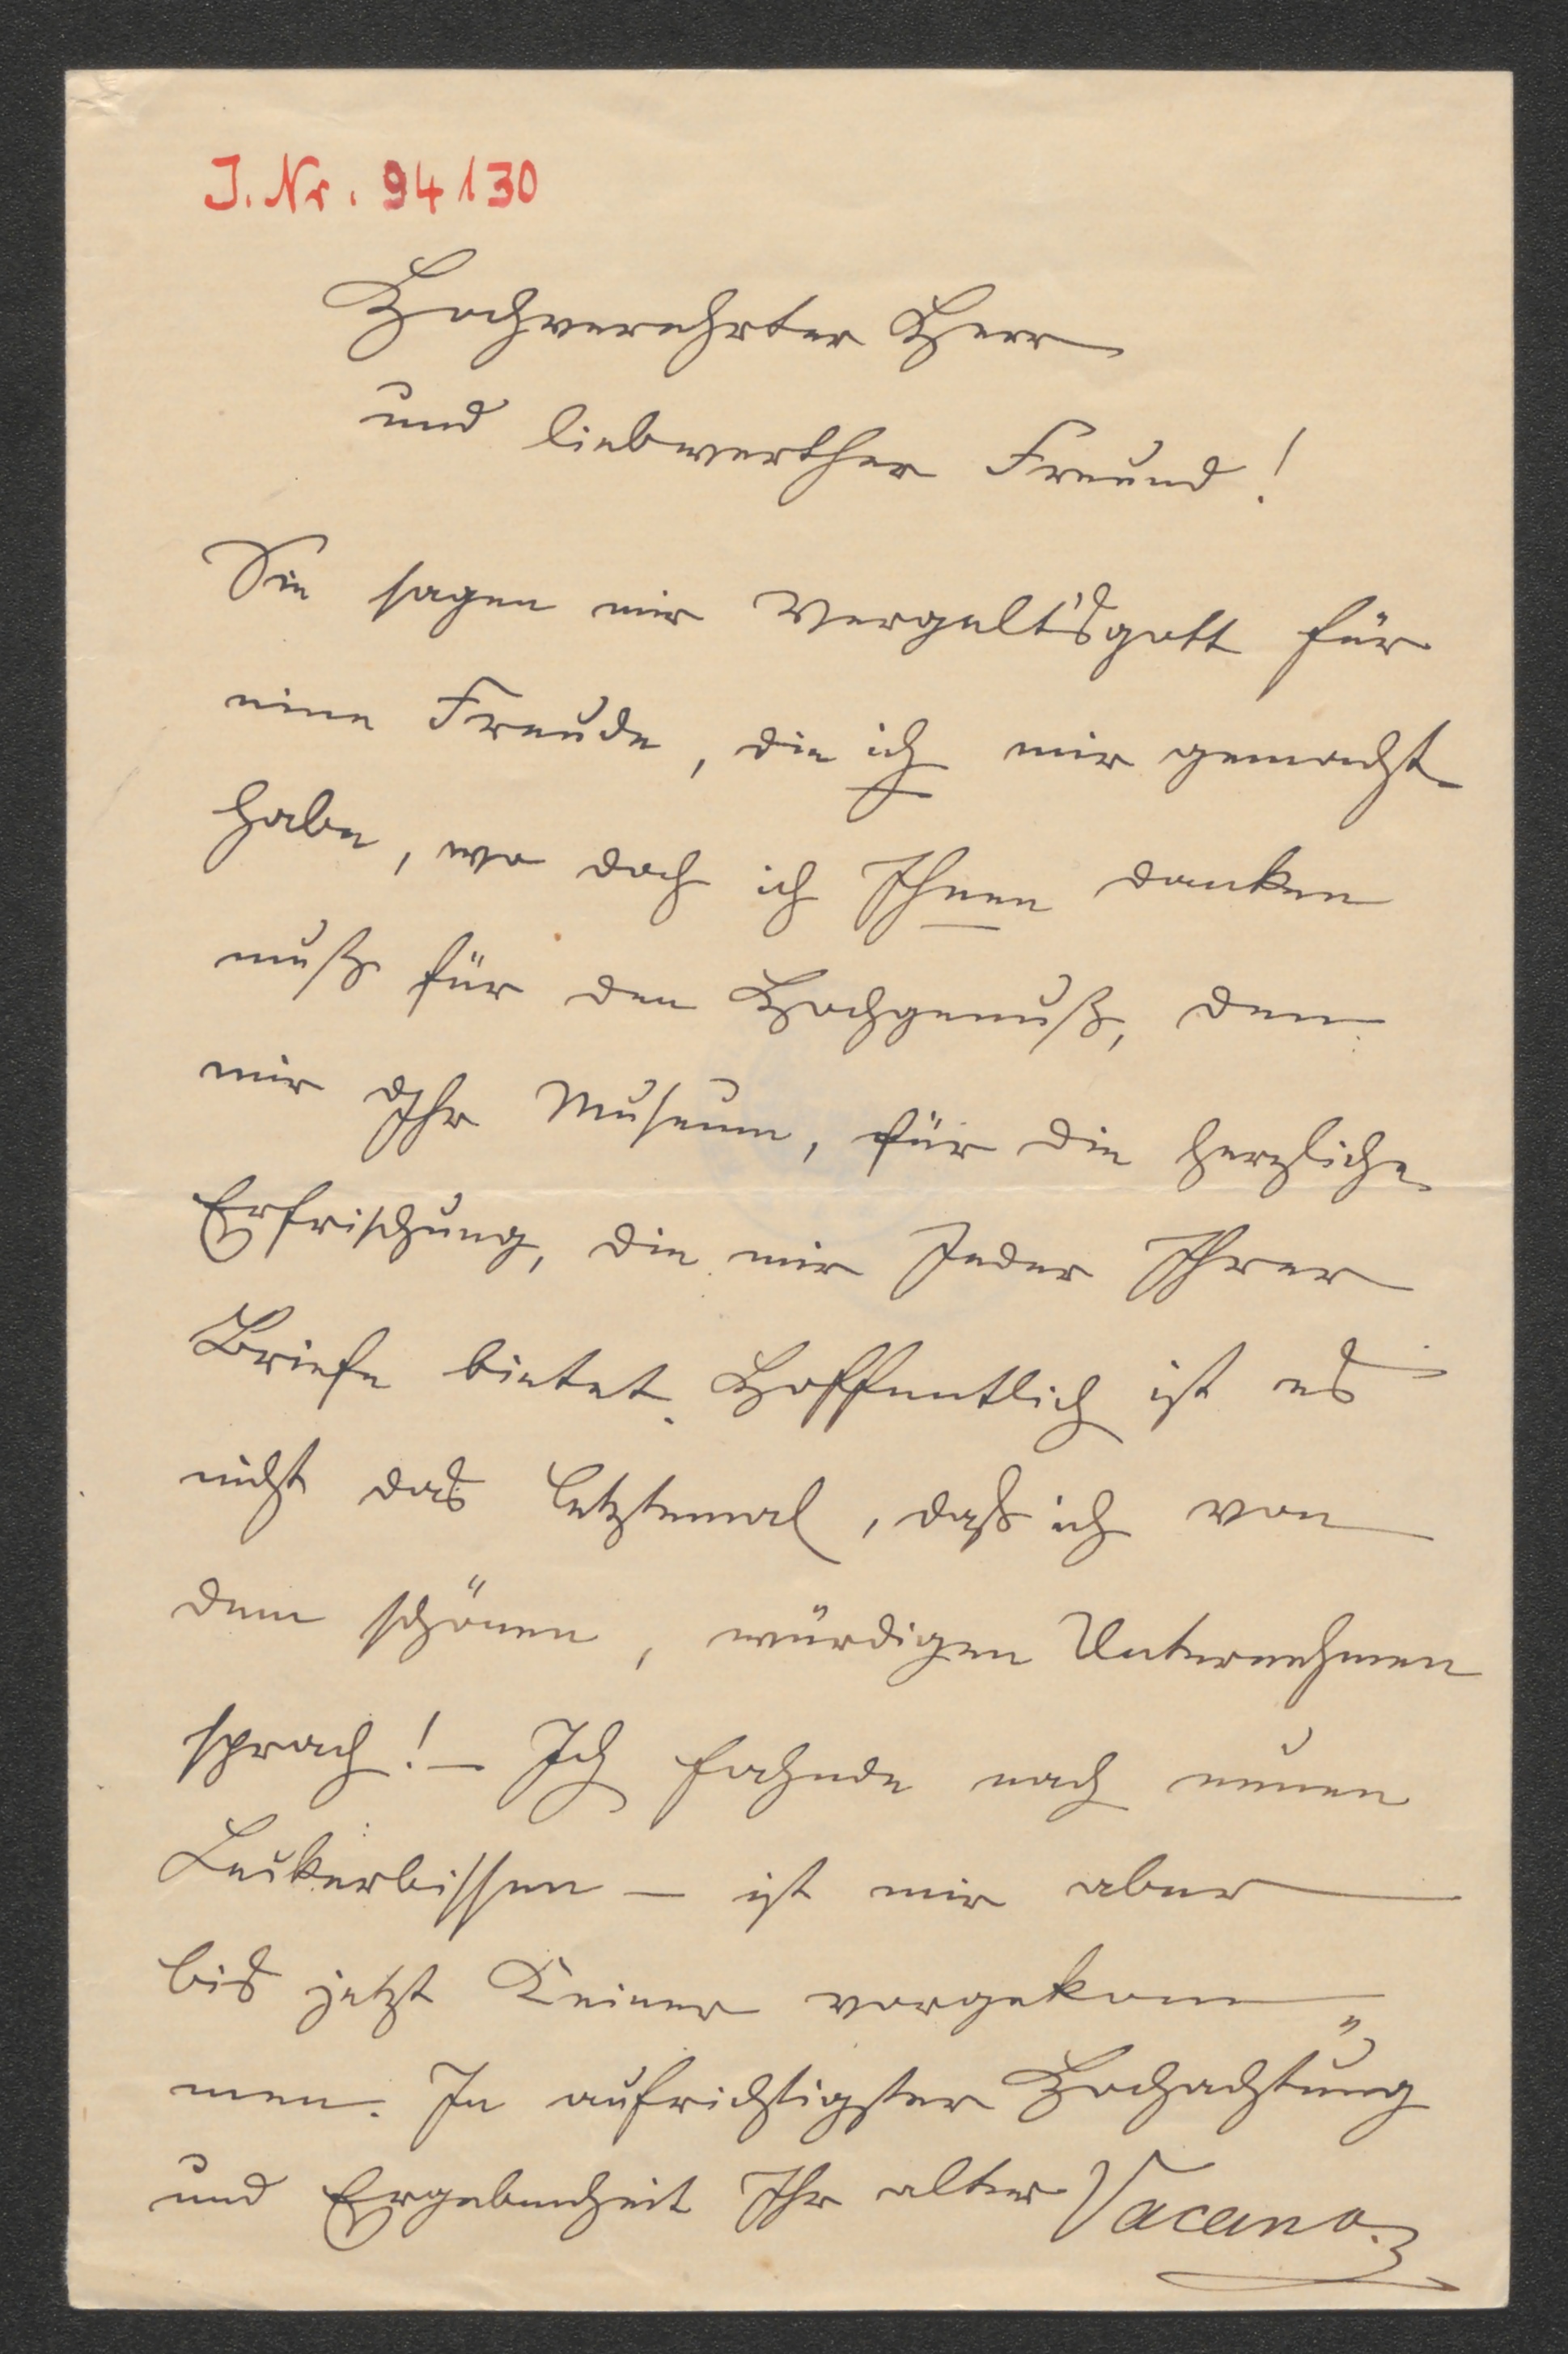 J. Nr. 94130
Hochverehrter Herr
und liebwerther Freund!
Sie sagen mir Vergelt'sgott für
eine Freude, die ich mir gemacht
habe, wo doch ich Ihnen danken
muß für den Hochgenuß, den
mir Ihr Museum, für die herzliche
Erfrischung, die mir Jeder Ihrer
Briefe bietet. Hoffentlich ist es
nicht das letztemal, daß ich von
dem schönen, würdigen Unternehmen
sprach! – Ich fahnde nach neuen
Leckerbissen – ist mir aber
bis jetzt Keiner vorgekom
men. In aufrichtigster Hochachtung
und Ergebenheit Ihr alter Vacano.